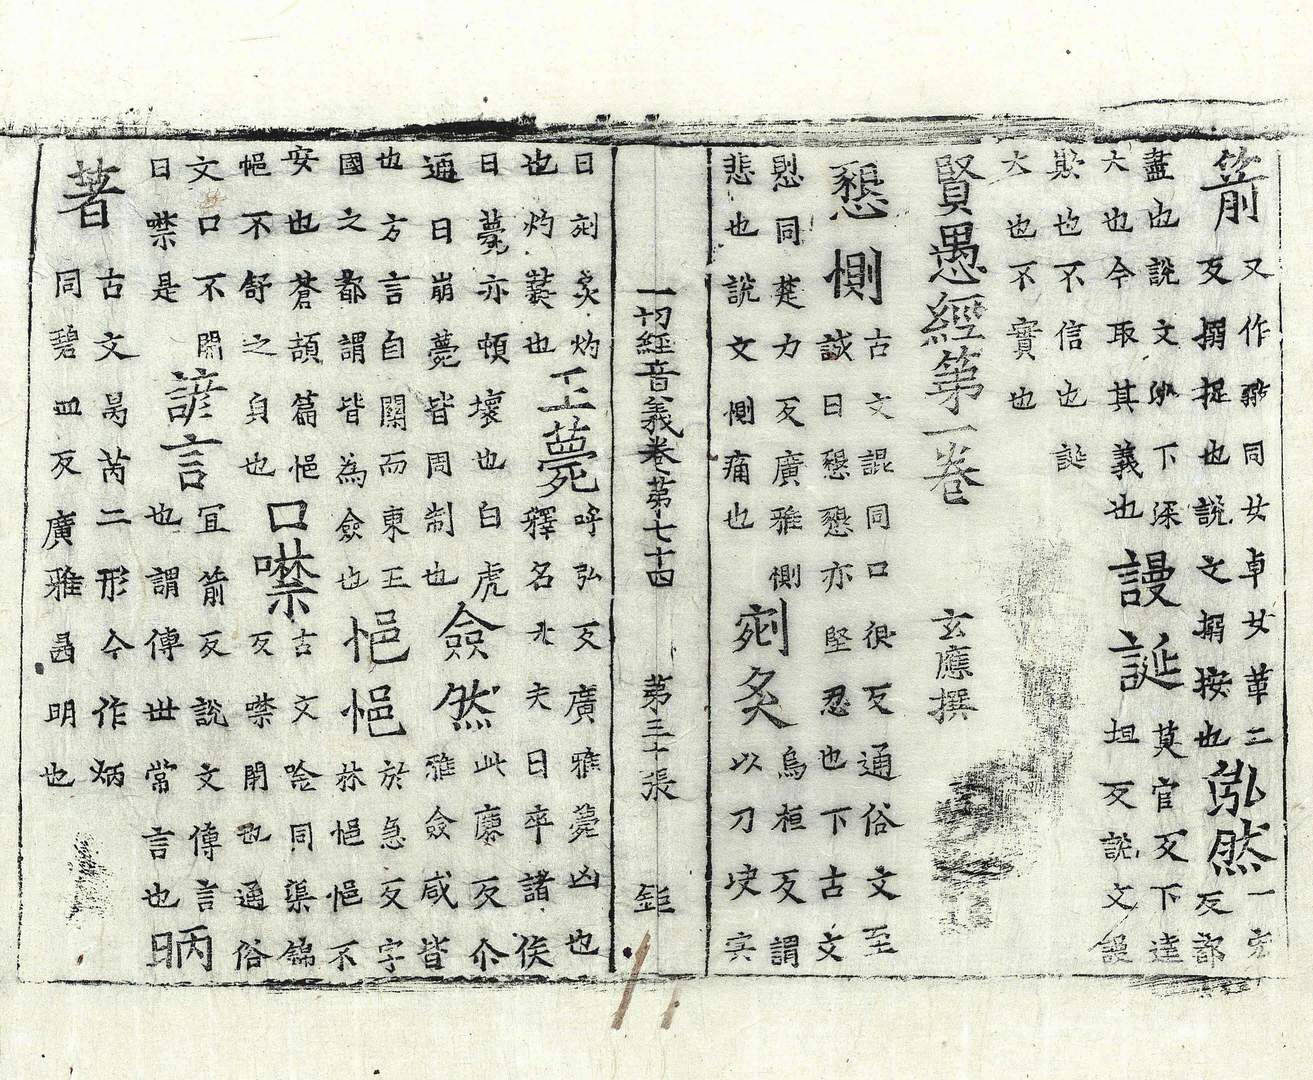 箭
又作䂎同女卓女革二
反搦捉也說文搦按也
泓然
一宏
反都
盡也說文泓下深
大也今取其義也
謾誕
莫官反下達
坦反說文謾
欺也不信也誕
大也不實也
賢愚經第一卷 玄應撰
懇惻
古文詪同口很反通俗文至
誠曰懇懇亦堅忍也下古文
同楚力反廣雅惻
悲也說文惻痛也
剜炙
烏桓反謂
以刀决宍
一切經音義卷第七十四 第三十張 鉅
曰剜炙灼
也灼爇也
王薨
呼弘反廣雅薨凶也
釋名大夫曰卒諸侯
曰薨亦頓壞也白虎
通曰崩薨皆周制也
僉然
此廉反尒
雅僉咸皆
也方言自關而東五
國之都謂皆為僉也
悒悒
於急反字
林悒悒不
安也蒼頡篇悒
悒不舒之皃也
口噤
古文唫同渠錦
反噤閉也通俗
文口不開
曰噤是
諺言
冝箭反說文傳言
也謂傳世常言也
昞著
古文昺芮二形今作炳
同碧皿反廣雅昺明也